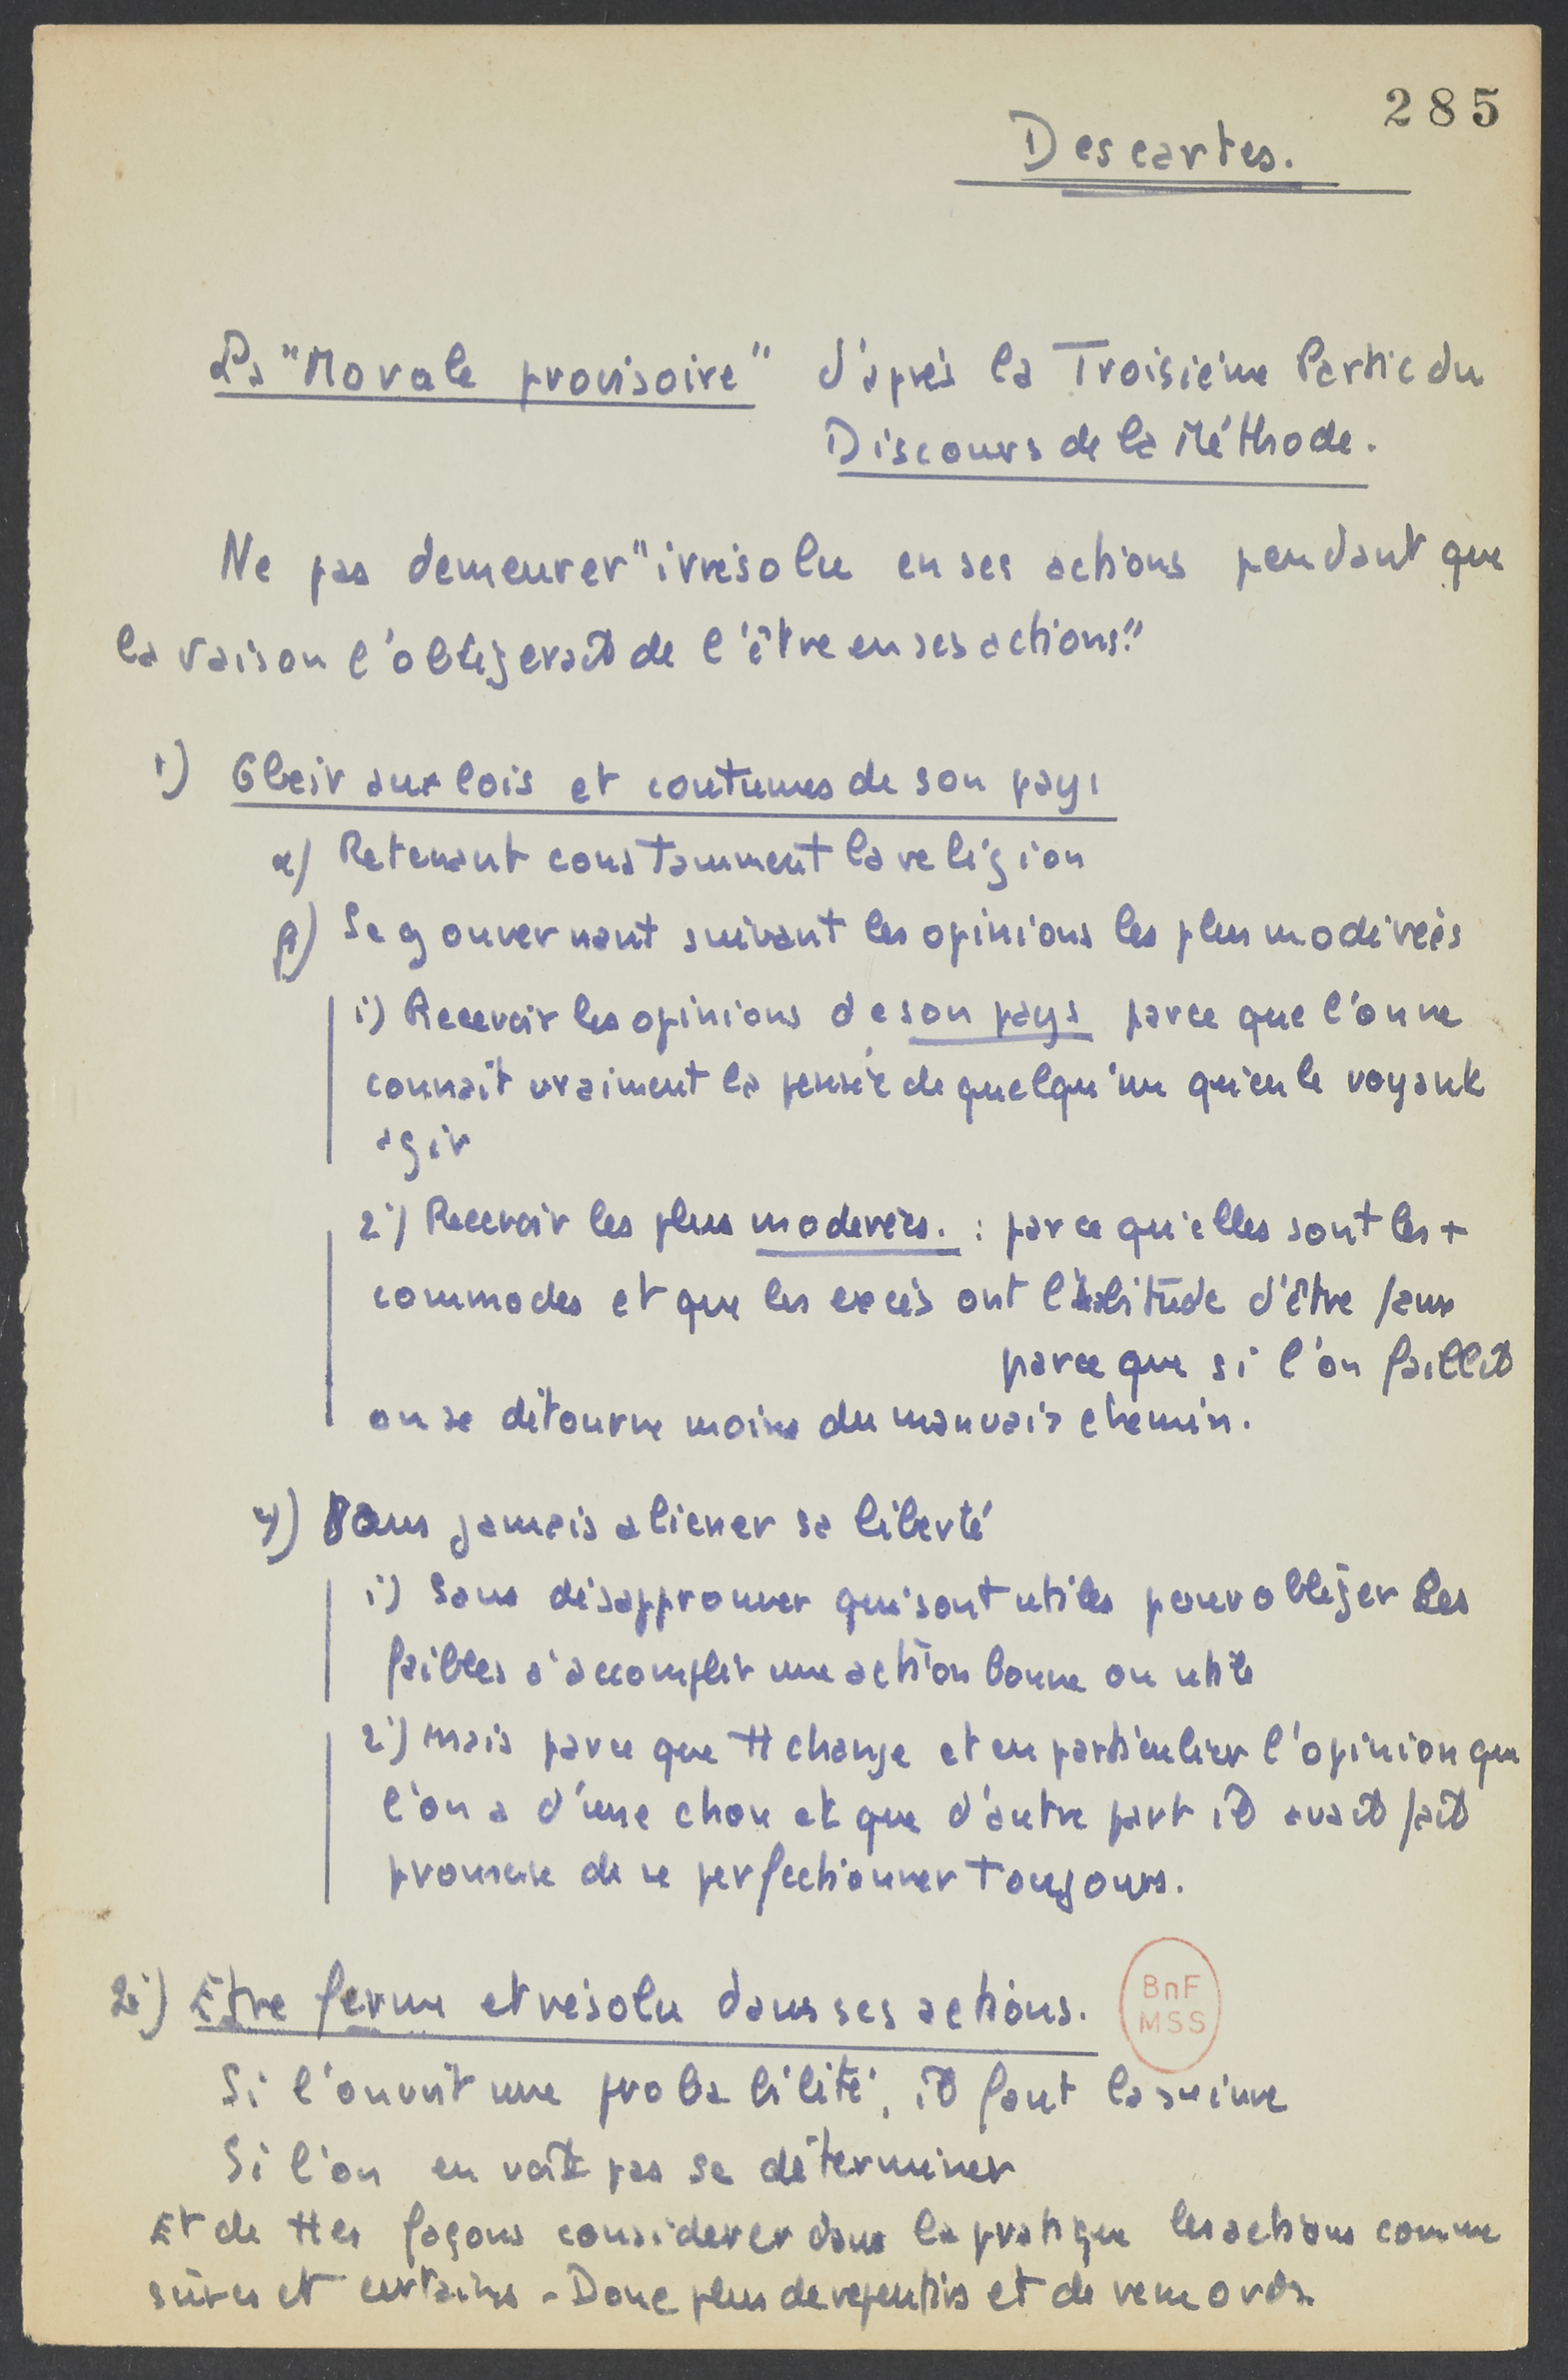 285
Descartes.
La "Morale provisoire" d'après la Troisième Partie du
Discours de la Méthode.
Ne pas demeurer "irrésolu en ses actions pendant que
la raison l'obligerait de l'être en ses actions."
1) Obeir aux lois et coutumes de son pays
α) Retenant constamment la religion
β) Se gouvernant suivant les opinions les plus modérées
1) Recevoir les opinions de son pays parce que l'on ne
connaît vraiment la pensée de quelqu'un qu'en le voyant
agir
2) Recevoir les plus moderées. : parce qu'elles sont les +
commodes et que les excès ont l'habitude d'être faux
parce que si l'on faillit
on se détourne moins du mauvais chemin.
γ) Sans jamais aliener sa liberté
1) Sans désapprouver qui sont utiles pour obliger les
faibles à accomplir une action bonne ou utile
2) mais parce que tt change et en particulier l'opinion que
l'on a d'une chose et que d'autre part il avait fait
promesse de se perfectionner toujours.
2) Etre ferme et résolu dans ses actions.
BnF
MSS
Si l'on voit une probabilité, il faut la suivre
Si l'on en voit pas se déterminer
Et de ttes façons considerer dans la pratique les actions comme
sûres et certaines - Donc plus de repentirs et de remords